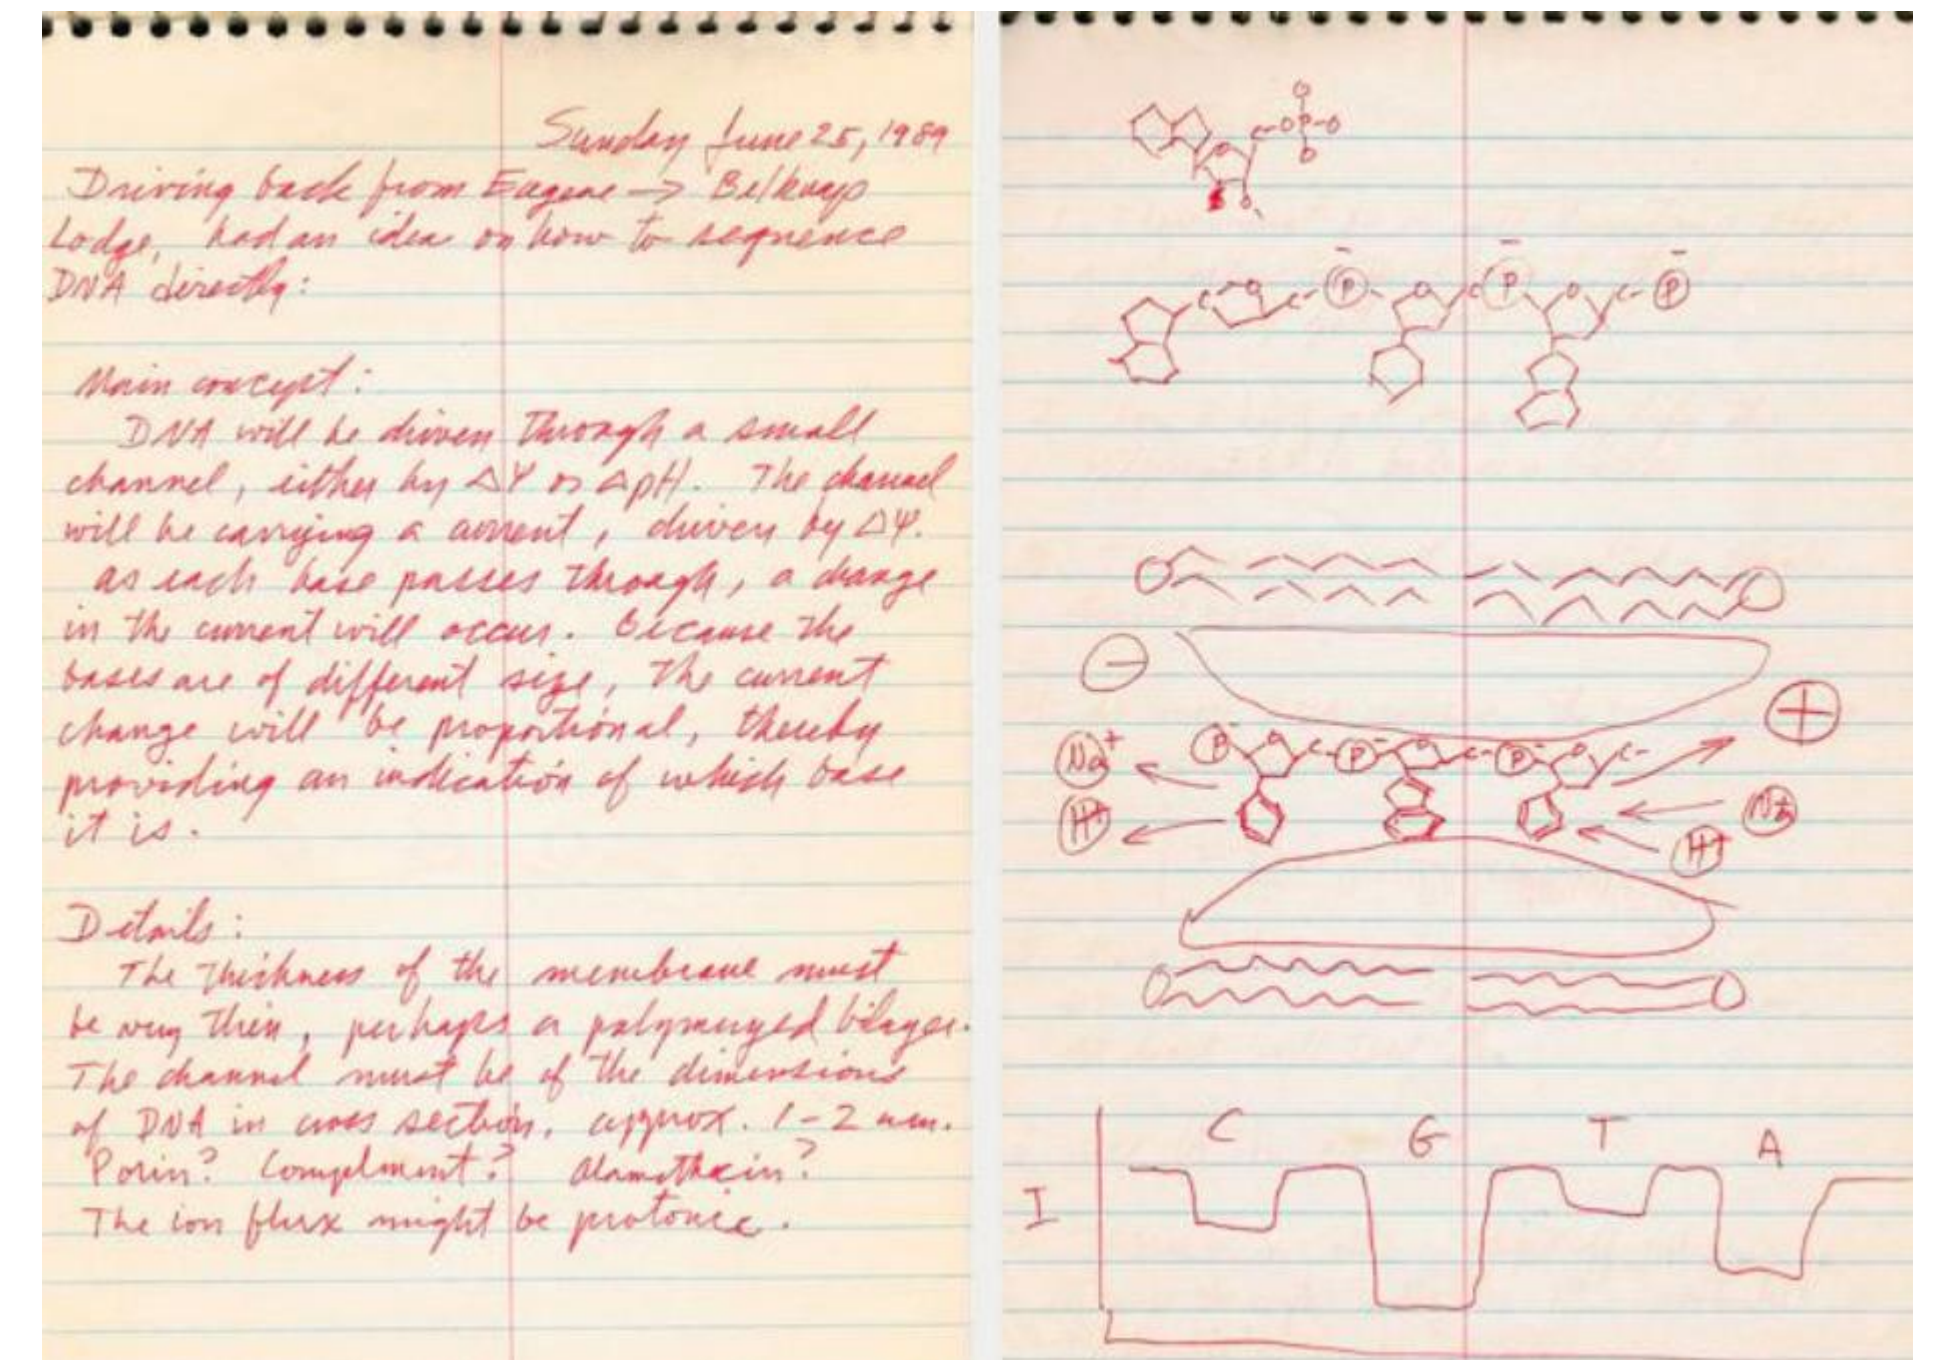 Sunday June 25, 1989
Driving back from Eugene → Belknap
Lodge, had an idea on how to sequence
DNA directly:
Main concept:
DNA will be driven through a small
channel, either by ΔΨ or ΔpH. The channel
will be carrying a current, driven by ΔΨ.
as each base passes through, a change
in the current will occur. Because the
bases are of different size, the current
change will be proportional, thereby
providing an indication of which base
it is.
Details:
The thickness of the membrane must
be very thin, perhaps a polymerized bilayer.
The channel must be of the dimensions
of DNA in cross section, approx. 1-2 nm.
Porin? Complment? Alamethicin?
The ion flux might be protonic.
O
C-O-P-O
O O
O
O C-P- O C P O C-P
C
- - -
−
+
Na+ P- O C-P- O C-P- O C-
H+ Na+
H+
C G T A
I